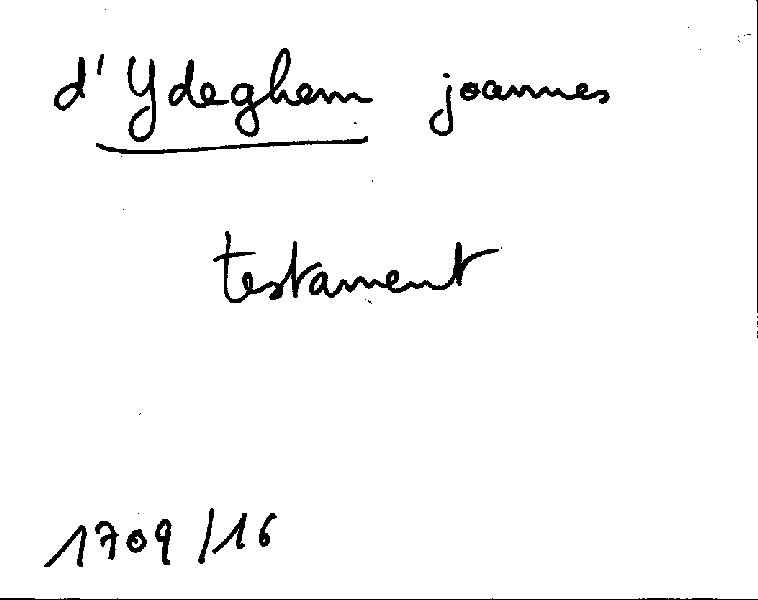 d'Ydeghem joannes
testament
1709/16